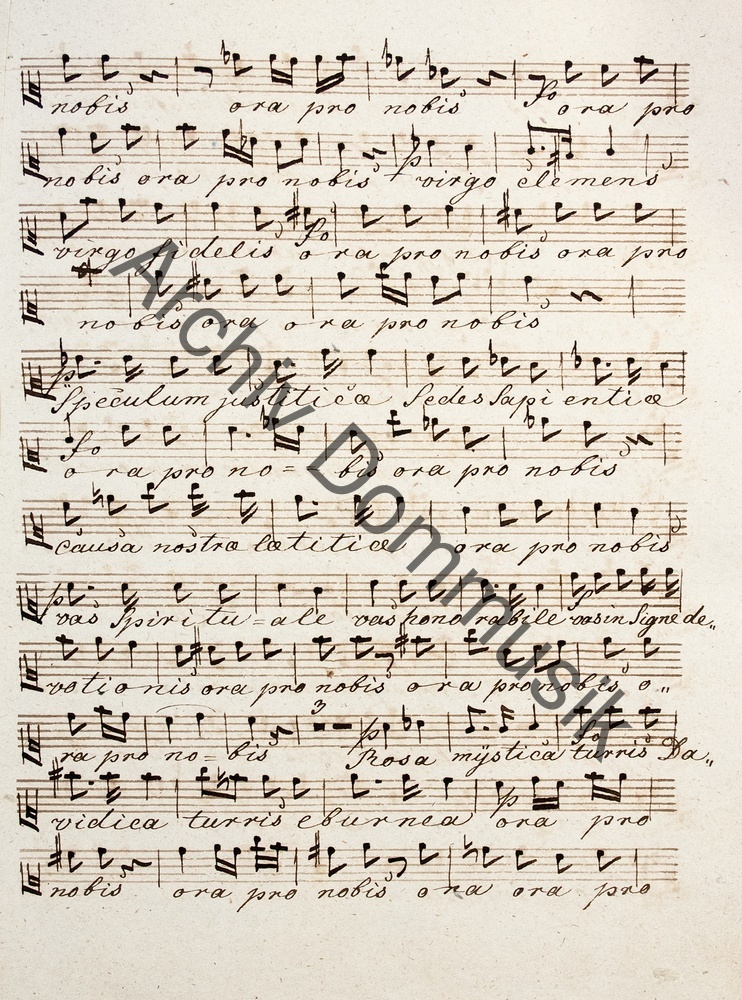 nobis ora pro nobis fo ora pro
nobis ora pro nobis p virgo clemens
virgo fidelis fo ora pro nobis ora pro
nobis ora ora pro nobis
p Speculum justitiæ Sedes Sapientiæ
fo ora pro no=- bis ora pro nobis
causa nostræ lætitiæ ora pro nobis
p vas Spiritu=ale vas honorabile vas in Signe de,,
votionis ora pro nobis ora pro nobis o,,
ra pro no=bis 3 p Rosa mÿstica fo turris Da,,
vidica turris eburnea p ora pro
nobis ora pro nobis ora ora pro
Archiv Dommusik